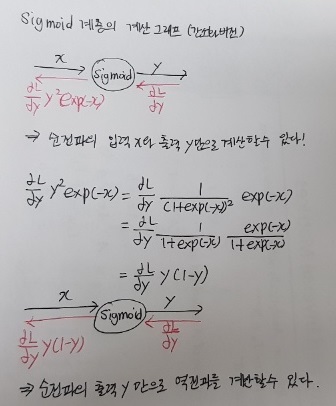 Sigmoid 계층의 계산 그래프 (간소화버전)
x Sigmoid y
∂L/∂y y² exp(-x) ∂L/∂y
⇒ 순전파의 입력 x와 출력 y만으로 계산할수 있다!
∂L/∂y y² exp(-x) = ∂L/∂y 1/(1+exp(-x))² exp(-x)
= ∂L/∂y 1/1+exp(-x) exp(-x)/1+exp(-x)
= ∂L/∂y y(1-y)
x Sigmoid y
∂L/∂y y(1-y) ∂L/∂y
⇒ 순전파의 출력 y 만으로 역전파를 계산할수 있다.